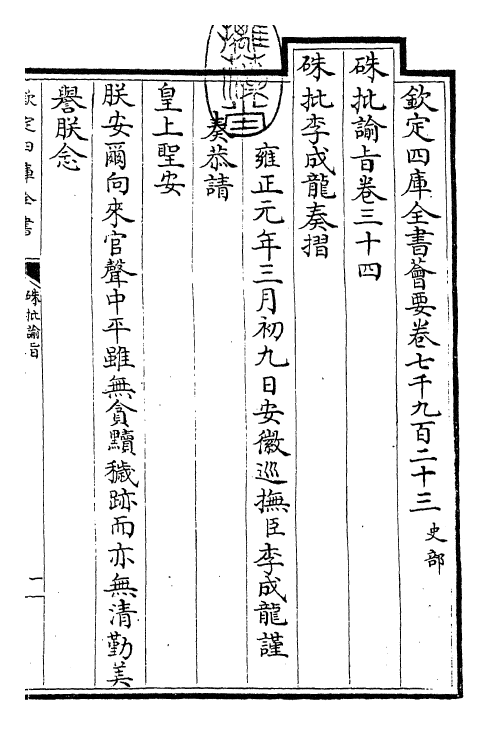 欽定四庫全書薈要卷七千九百二十三 史部
硃批諭旨卷三十四
硃批李成龍奏摺
雍正元年三月初九日安徽巡撫臣李成龍謹
奏恭請
皇上聖安
朕安爾向來官聲中平雖無貪黷穢跡而亦無清勤美
譽朕念
欽定四庫全書
硃批諭旨
一